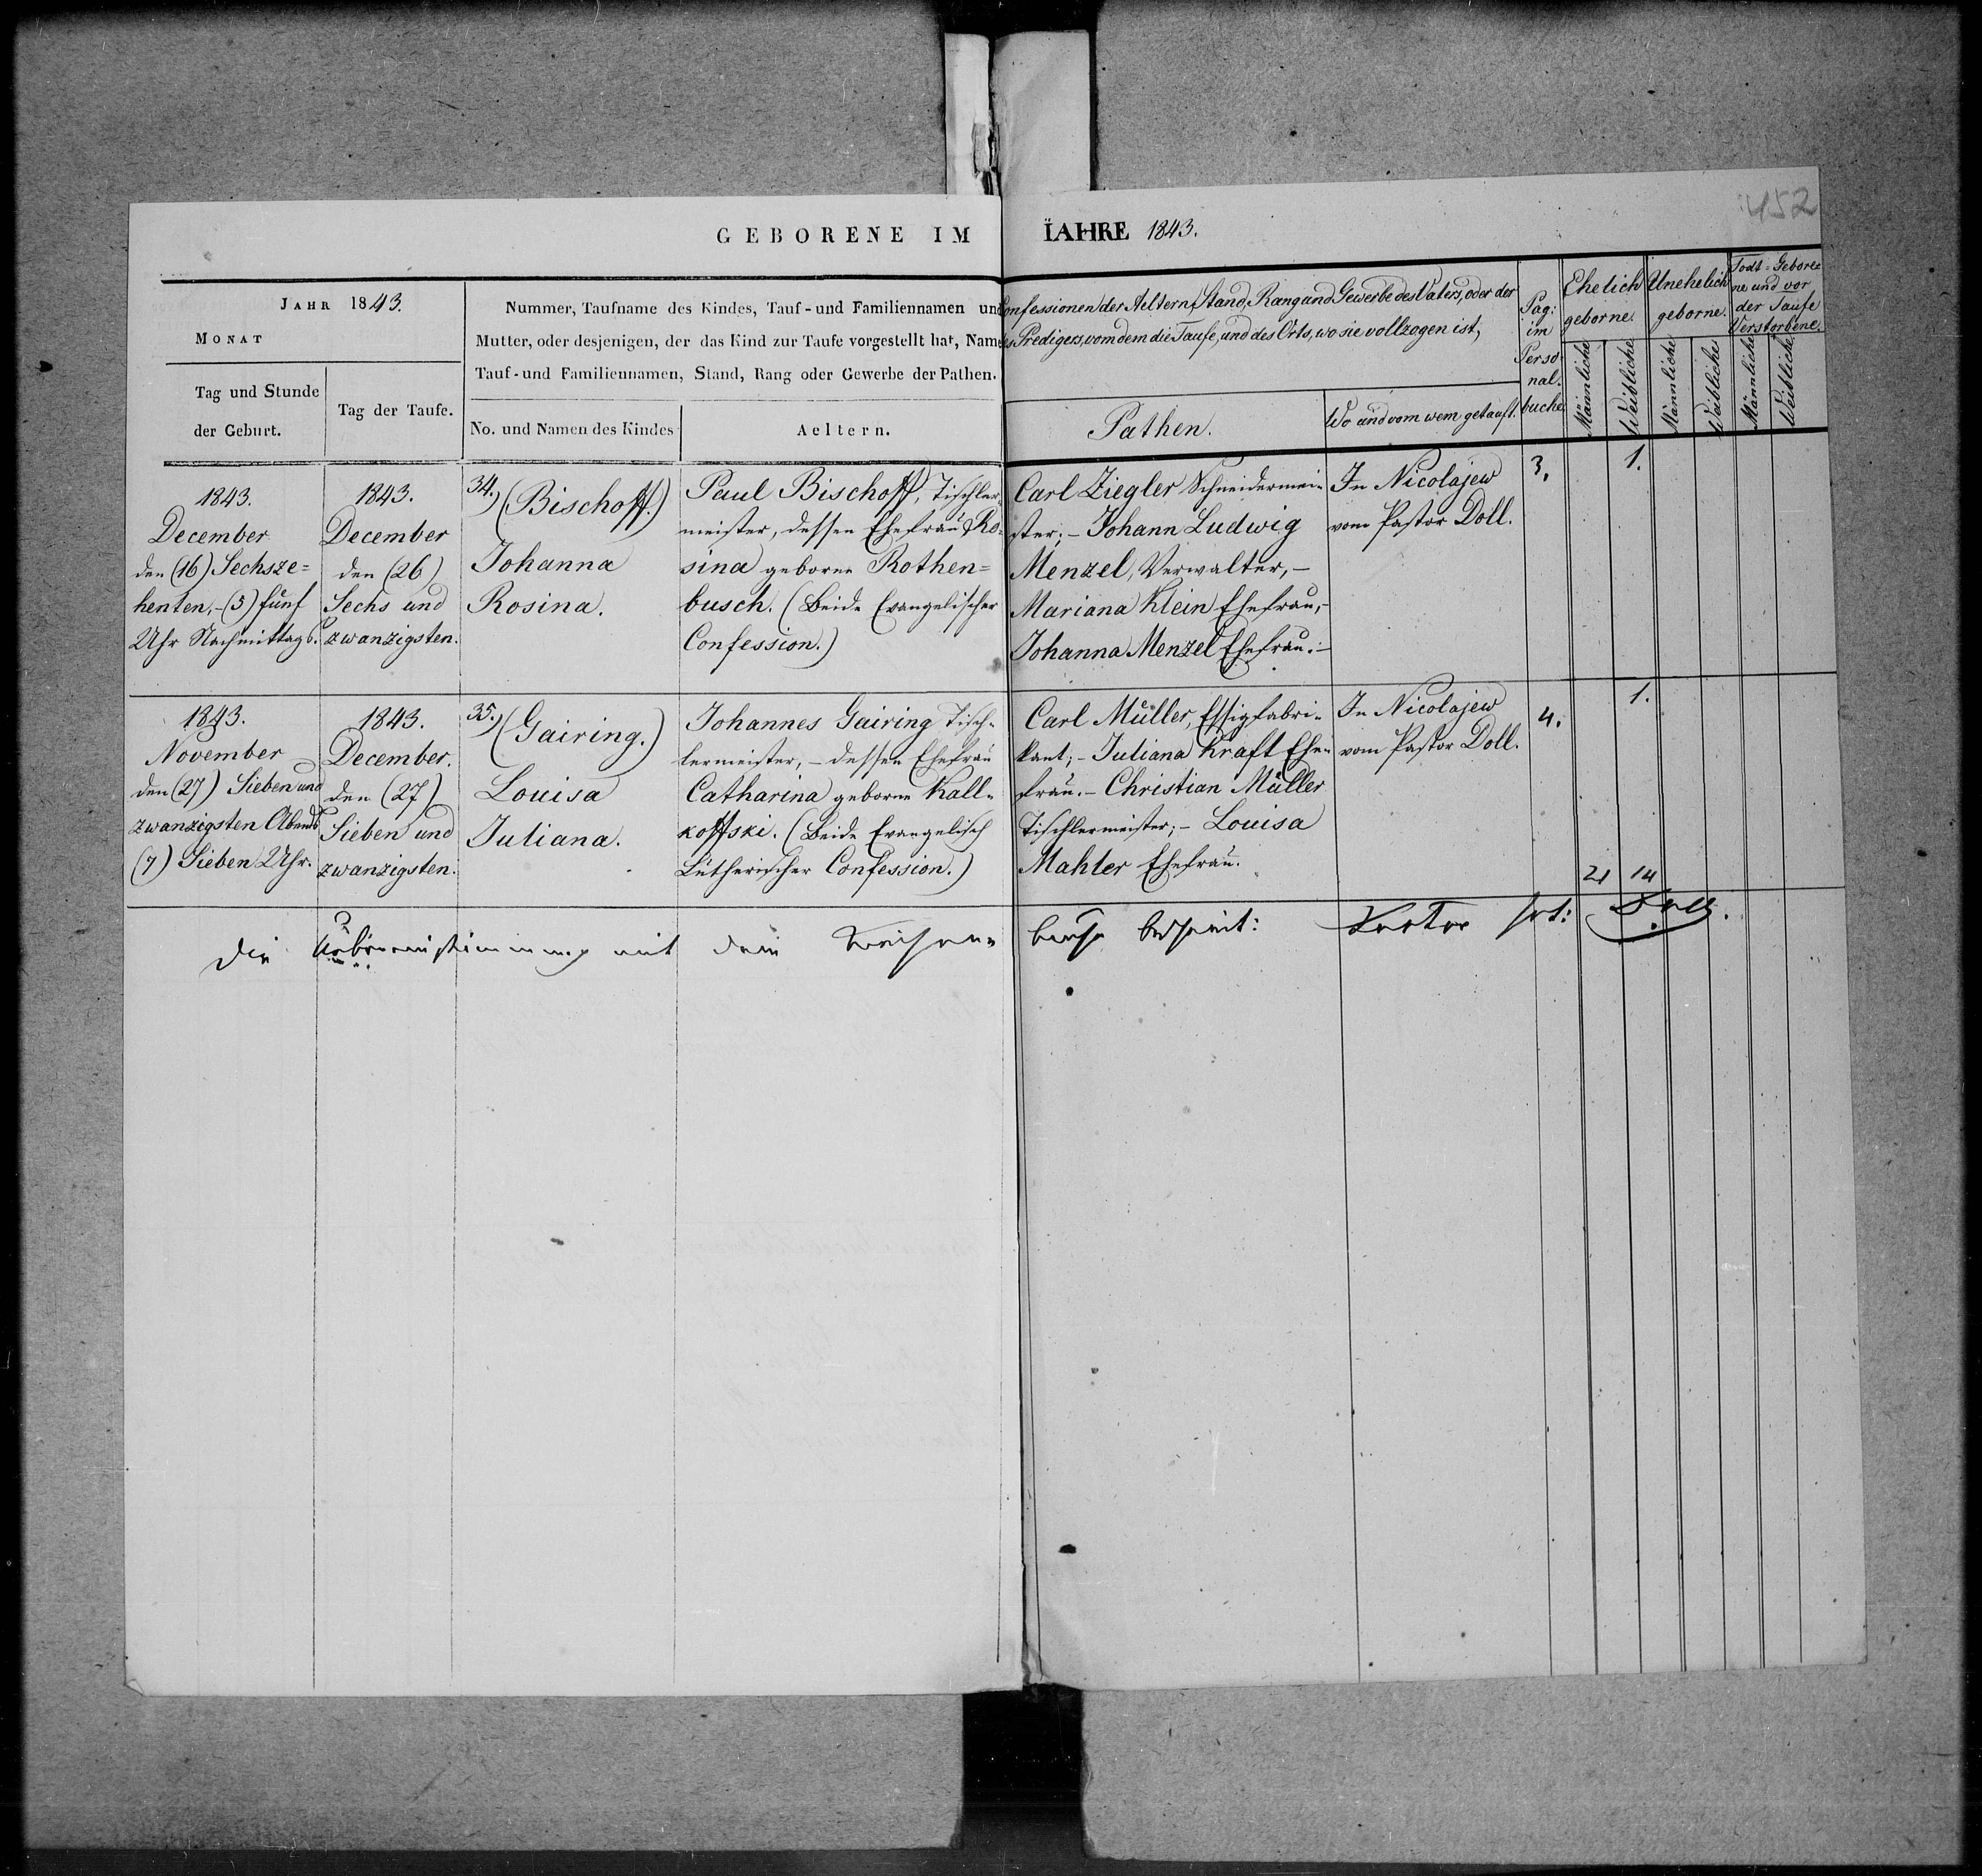 452
GEBORENE IM IAHRE 1843.
JAHR 1843.
MONAT
Tag und Stunde
der Geburt.
Tag der Taufe.
Nummer, Taufname des Kindes, Tauf- und Familiennamen und Confessionen der Aeltern, Stand, Rang und Gewerbe des Vaters, oder der
Mutter, oder desjenigen, der das Kind zur Taufe vorgestellt hat, Name des Predigers, vom dem die Taufe, und des Orts, wo sie vollzogen ist,
Tauf- und Familiennamen, Stand, Rang oder Gewerbe der Pathen.
No. und Namen des Kindes
Aeltern.
Pathen.
Wo und vom wem getauft.
Pag:
im
Perso-
nal-
buche
Ehelich
geborne.
Unehelich
geborne.
Todt-Gebore-
ne und vor
der Taufe
Verstorbene.
Männliche
Weibliche
Männliche
Weibliche
Männliche
Weibliche
1843.
December
den (16) Sechsze=
henten,-(5) fünf
Uhr Nachmittags.
1843.
December
den (26)
Sechs und
zwanzigsten.
34.) (Bischoff.)
Johanna
Rosina.
Paul Bischoff, Tischler-
meister, dessen Ehefrau Ro-
sina geborne Rothen=
busch. (Beide Evangelischer
Confession.)
Carl Ziegler Schneidermei-
ster; - Johann Ludwig
Menzel, Verwalter, -
Mariana Klein Ehefrau,-
Johanna Menzel Ehefrau.-
In Nicolajew
vom Pastor Doll.
3.
1.
1843.
November
den (27) Sieben und
zwanzigsten Abends
(7) Sieben Uhr.
1843.
December.
den (27)
Sieben und
zwanzigsten.
35.) (Gairing.)
Louisa
Juliana.
Johannes Gairing Tisch-
lermeister, - dessen Ehefrau
Catharina geborne Kall-
koffski. (Beide Evangelisch
Lutherischer Confession.)
Carl Müller, Essigfabri-
kant; - Juliana Kraft Ehe-
frau. - Christian Müller
Tischlermeister; - Louisa
Mahler Ehefrau.
In Nicolajew
vom Pastor Doll.
4.
1.
21 14
Die Uebereinstimmung mit dem Kirchen- buche bescheint: Pastor Doll.